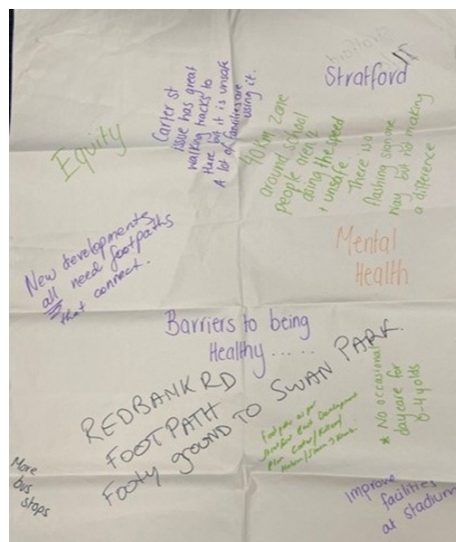 Stratford
Equity
Carter st
issue has great
walking tracks to
there but it is unsafe
A lot of families are
using it.
40km zone
around school
People aren't
doing the speed
+ unsafe
There is a
flashing sign one
way but not making
a difference
New developments
all need footpaths
that connect.
Mental
Health
Barriers to being
Healthy......
REDBANK RD
FOOTPATH
Footy ground to SWAN PARK.
* No occasional
daycare for
0-4 yolds
Footpaths as per
Development
Plan
More
bus
stops
Improve
facilities
at stadium